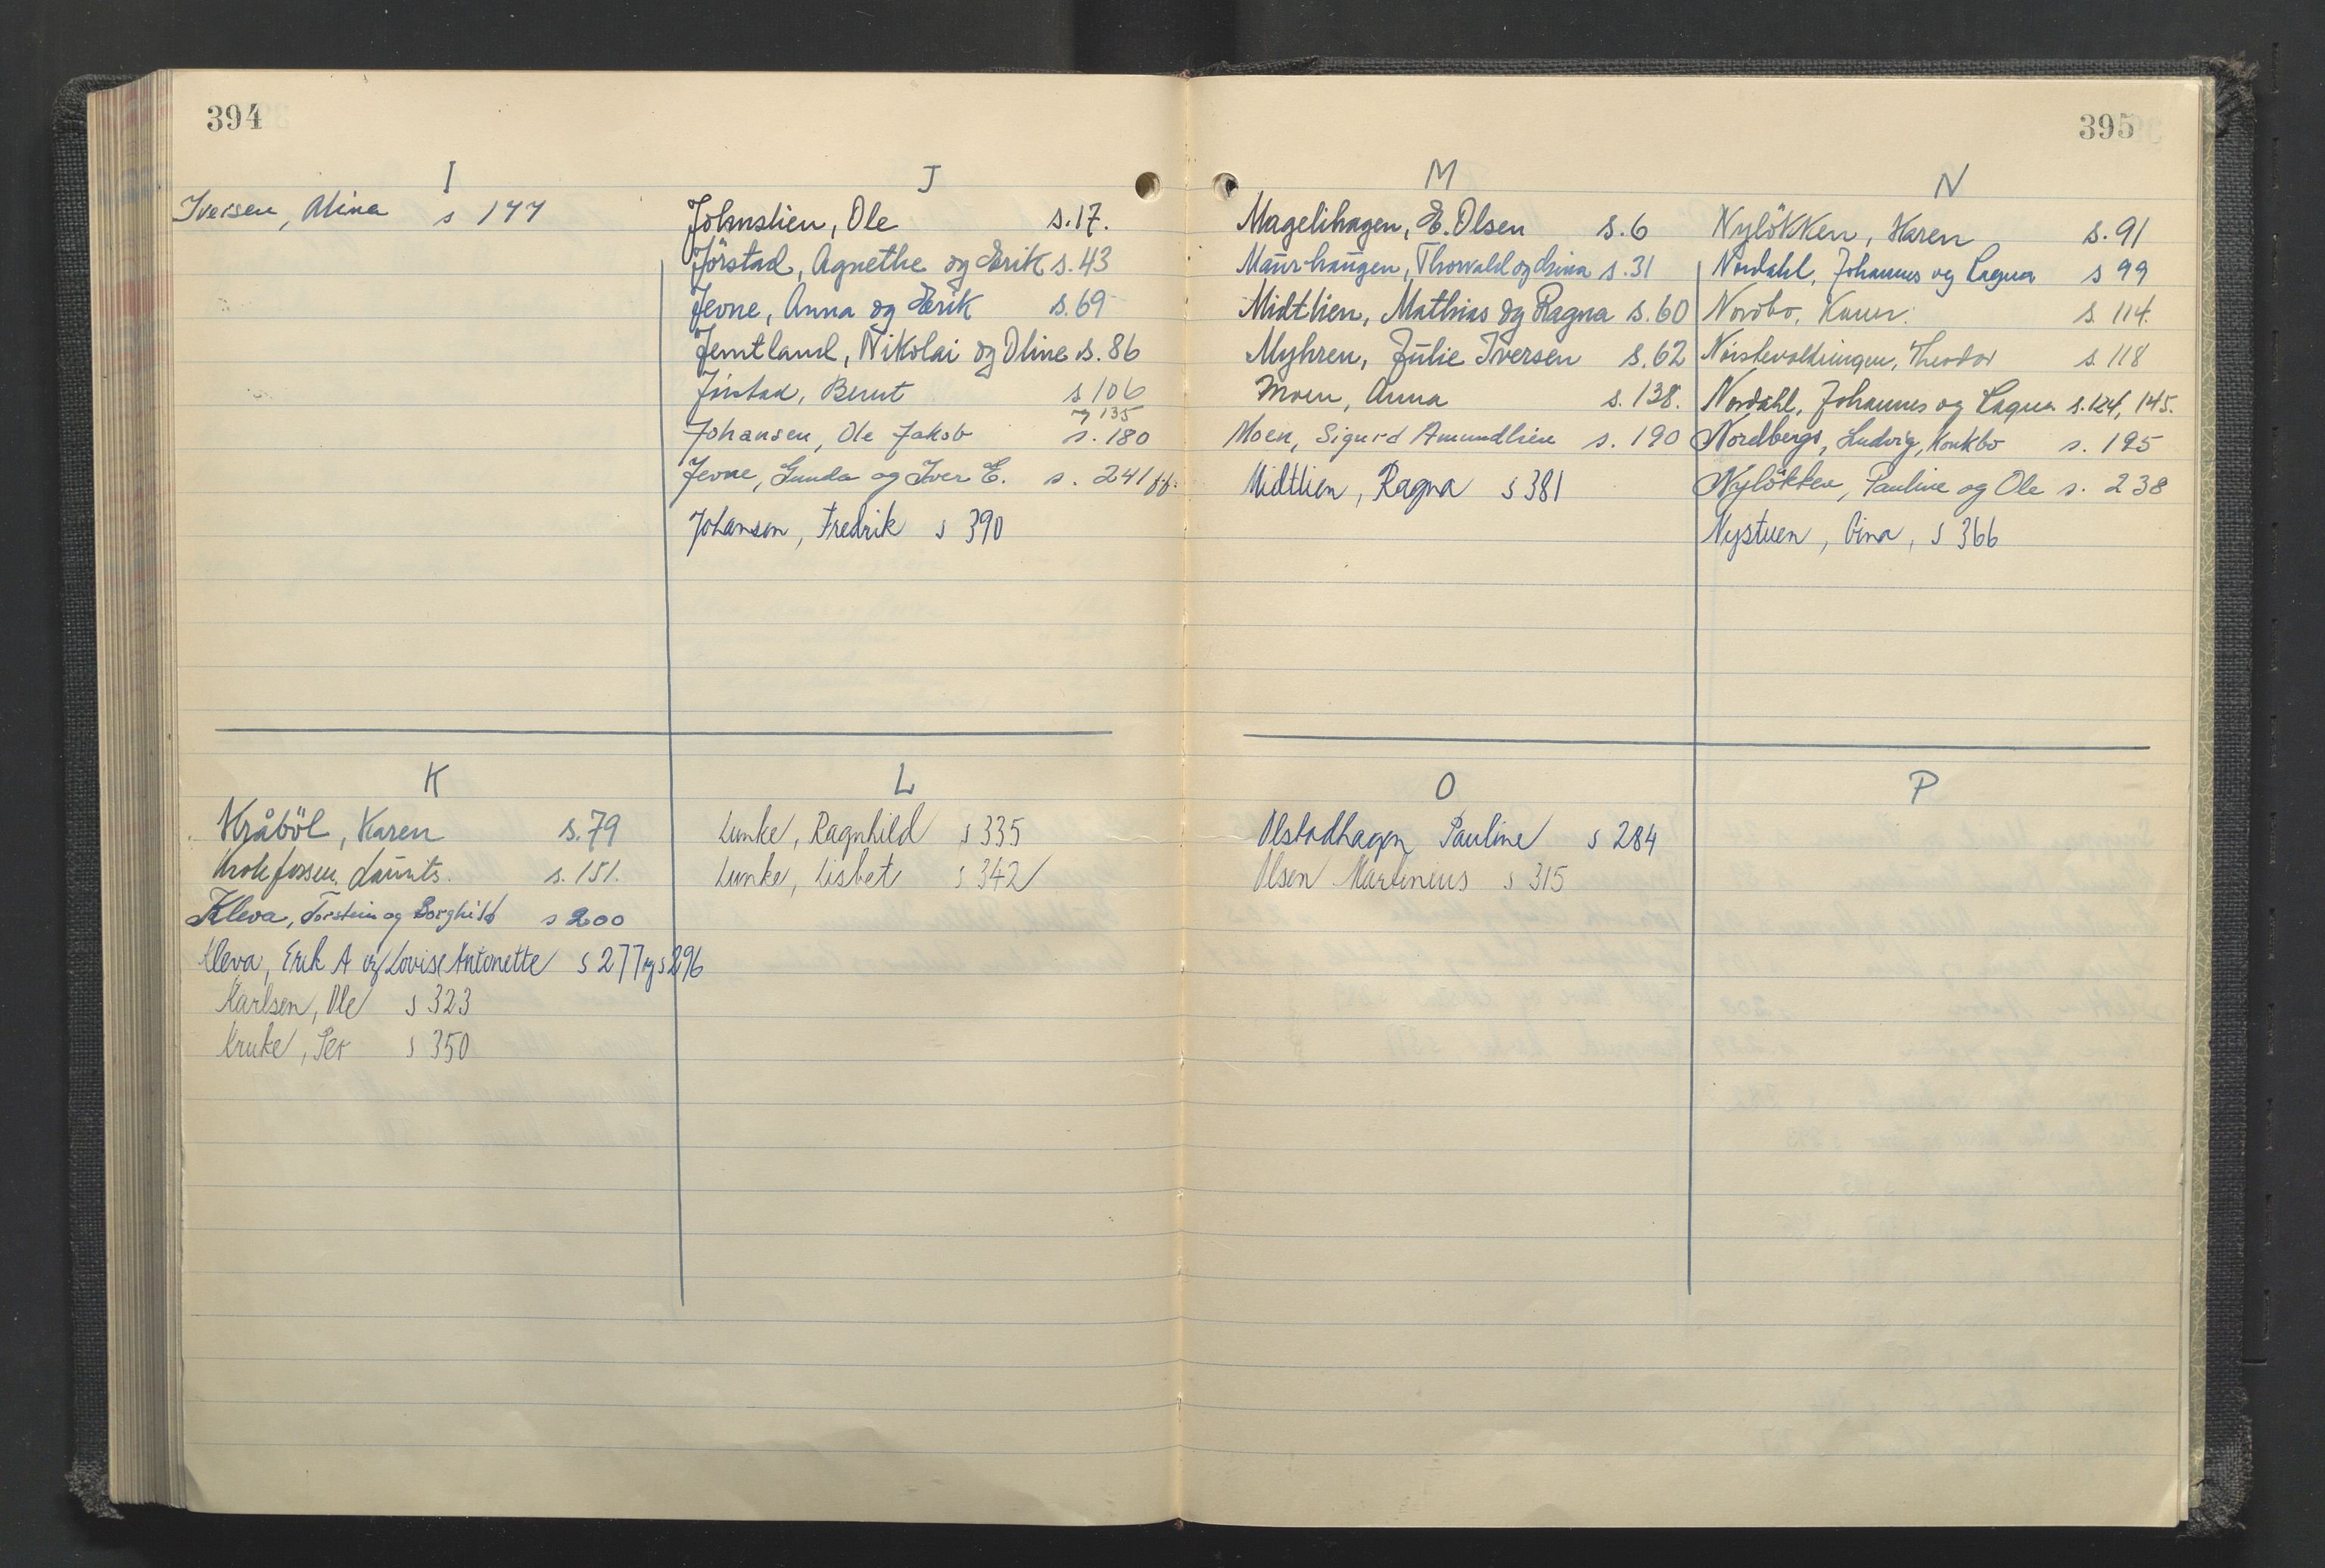 394
I
Iversen, Alina s 177
J
Johnslien, Ole s.17.
Jörstad, Agnethe og Erik s.43
Jevne, Anna og Erik s.69
Jemtland, Nikolai og Oline s.86
Jörstad, Bernt s 106
og 135
Johansen, Ole Jakob s.180
Jevne, Gunda og Iver E. s. 241 ff.
Johansen, Fredrik s 390
K
Kråböl, Karen s.79
Laurits. s.151.
Kleva, Torstein og Borghild s 200
Kleva, Erik A og Lovise Antonette s 277 og s 296
Karlsen, Ole s 323
Kruke, Per s 350
L
Lunke, Ragnhild s 335
Lunke, Lisbet s 342
395
M
Magelihagen, E. Olsen s.6
Maurhaugen, Thorvald og s.31
Midtlien, Mathias og Ragna s.60
Myhren, Julie Iversen s.62
Moen, Anna s.138.
Moen, Sigurd Amundlien s. 190
Midtlien, Ragna s 381
N
Nylökken, Karen s.91
Nordahl, Johannes og Ragna s 99
Nordbo, Karen. s. 114.
Theodor s. 118
Nordahl, Johannes og Ragna s.124, 145.
Nordberg, Ludvig, s. 195
Nylökken, Pauline og Ole s. 238
Nystuen, Gina, s 366
O
Olstadhagen Pauline s 284
Olsen Martineus s 315
P